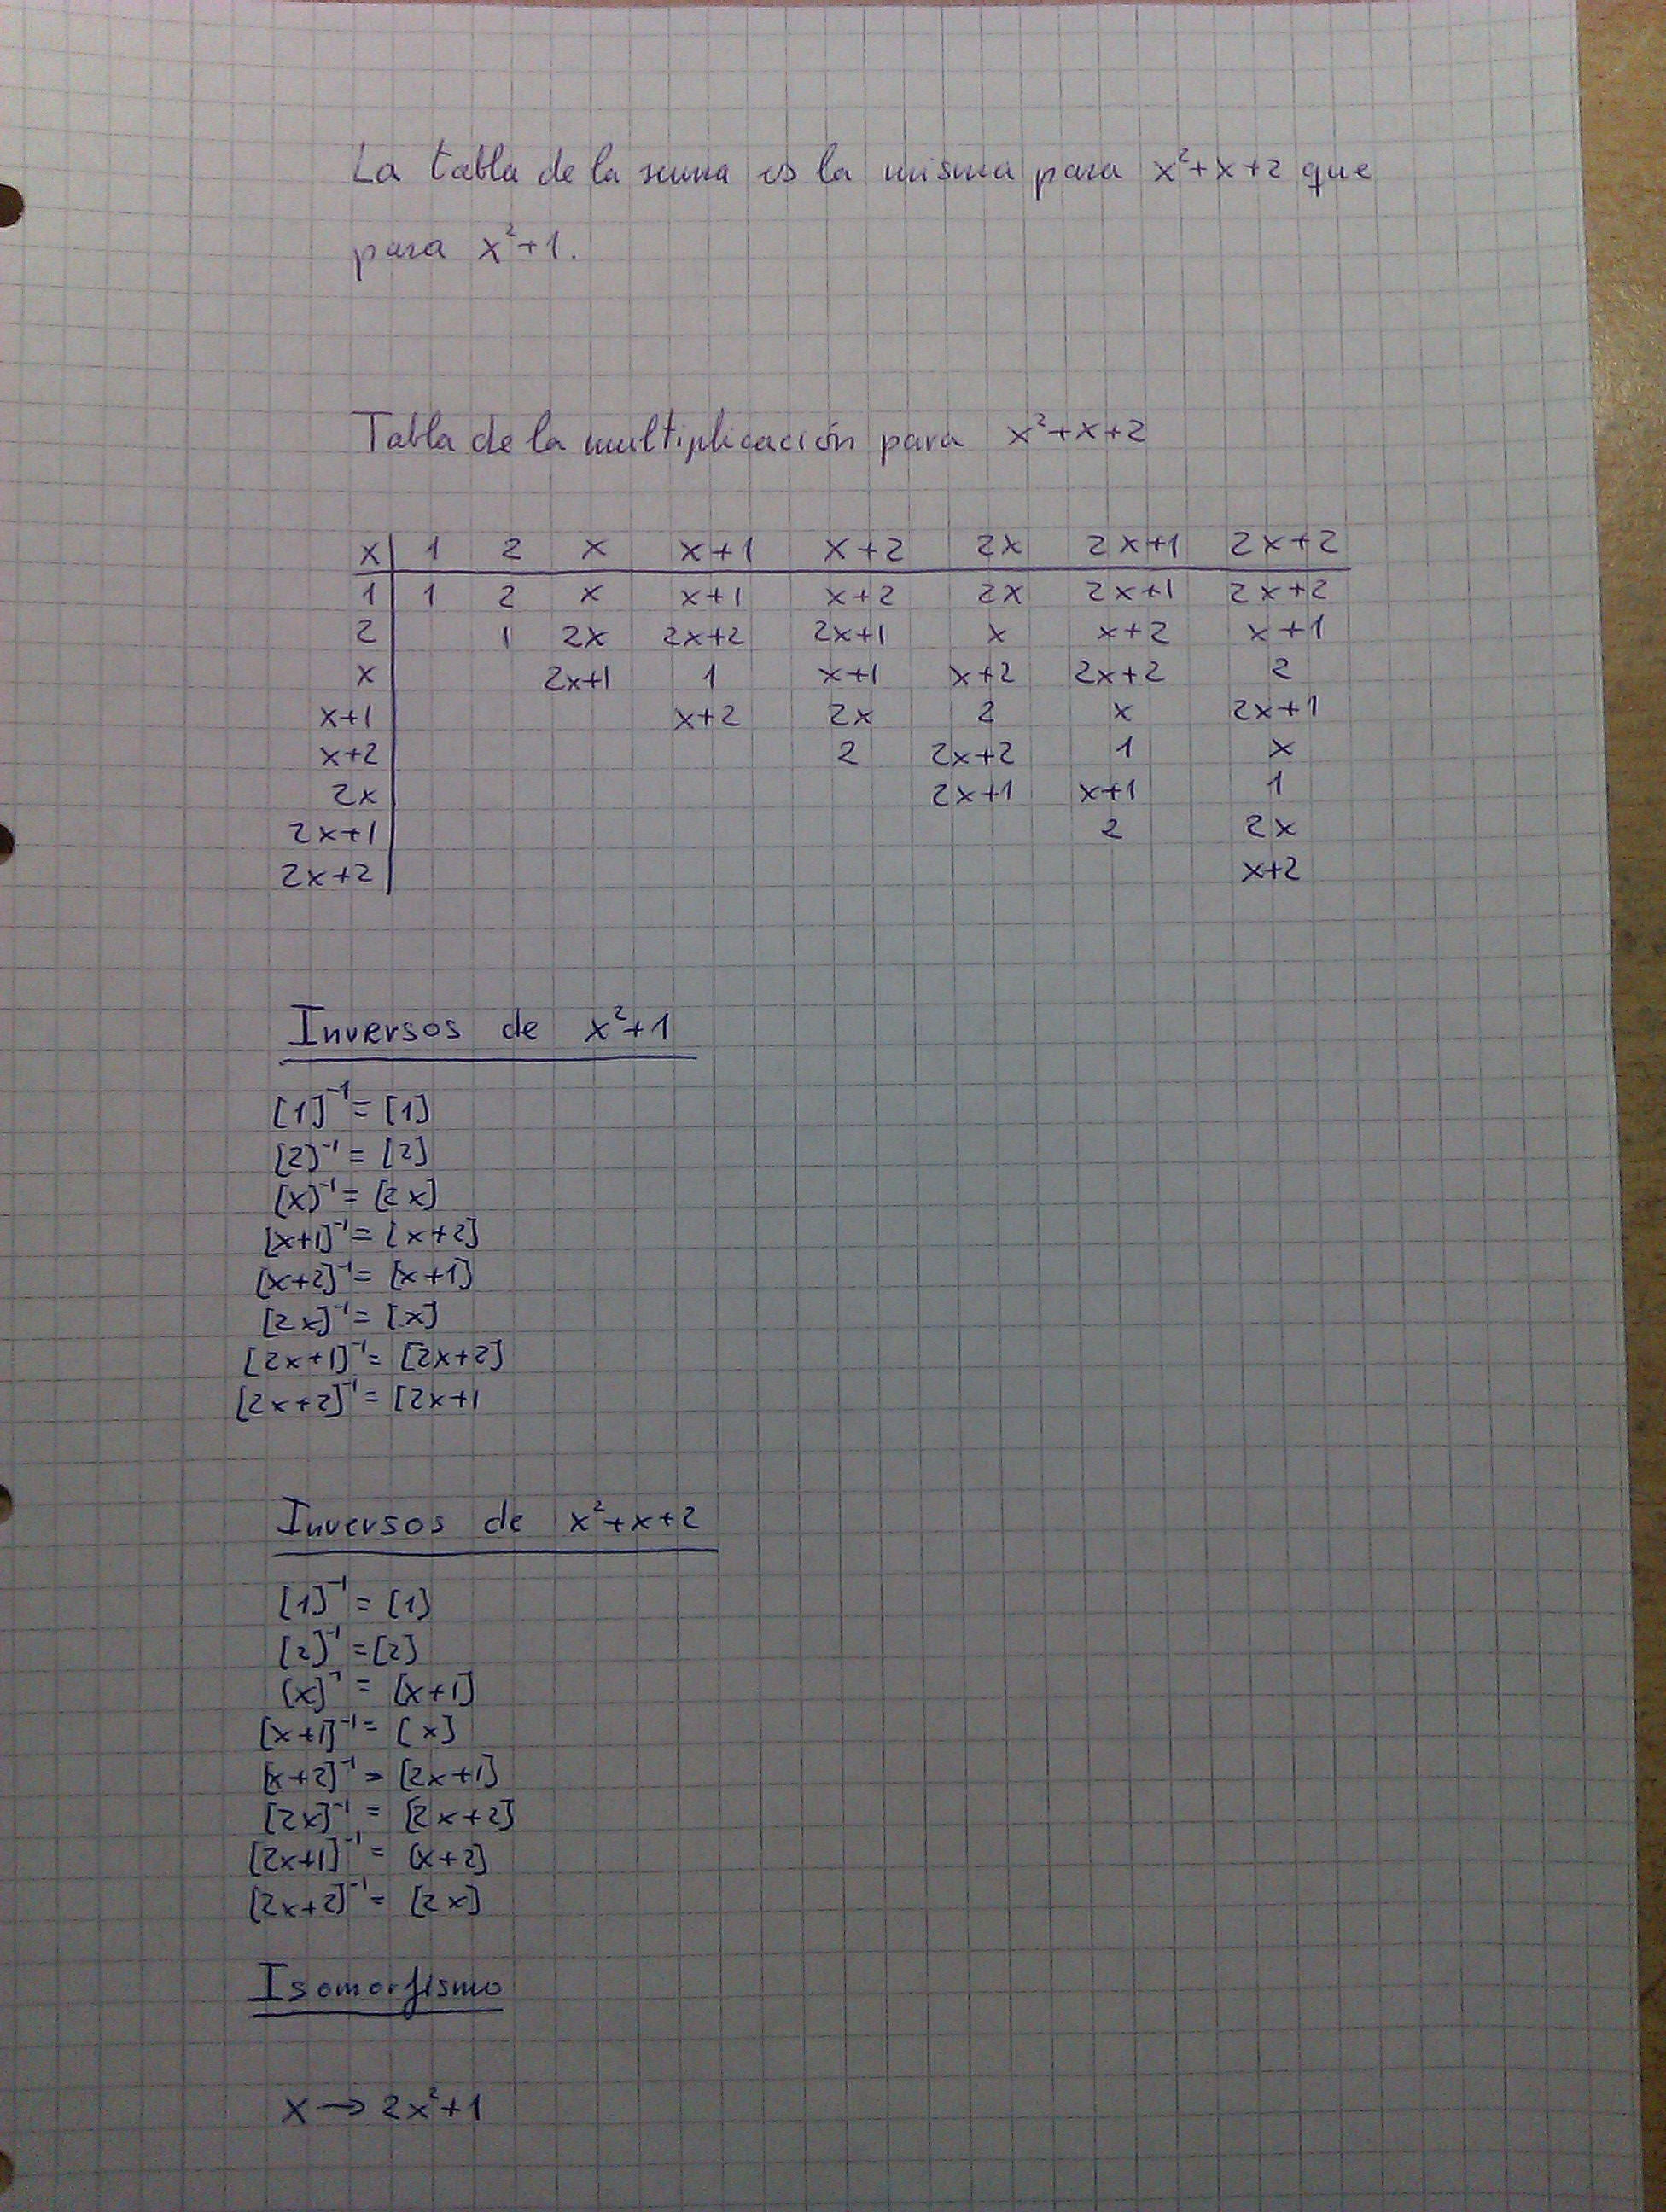 La tabla de la suma es la misma para x²+x+2 que
para x²+1.
Tabla de la multiplicación para x²+x+2
x 1 2 x x+1 x+2 2x 2x+1 2x+2
1 1 2 x x+1 x+2 2x 2x+1 2x+2
2 1 2x 2x+2 2x+1 x x+2 x+1
x 2x+1 1 x+1 x+2 2x+2 2
x+1 x+2 2x 2 x 2x+1
x+2 2 2x+2 1 x
2x 2x+1 x+1 1
2x+1 2 2x
2x+2 x+2
Inversos de x²+1
[1]⁻¹ = [1]
[2]⁻¹ = [2]
[x]⁻¹ = [2x]
[x+1]⁻¹ = [x+2]
[x+2]⁻¹ = [x+1]
[2x]⁻¹ = [x]
[2x+1]⁻¹ = [2x+2]
[2x+2]⁻¹ = [2x+1
Inversos de x²+x+2
[1]⁻¹ = [1]
[2]⁻¹ = [2]
[x]⁻¹ = [x+1]
[x+1]⁻¹ = [x]
[x+2]⁻¹ = [2x+1]
[2x]⁻¹ = [2x+2]
[2x+1]⁻¹ = [x+2]
[2x+2]⁻¹ = [2x]
Isomorfismo
x → 2x²+1